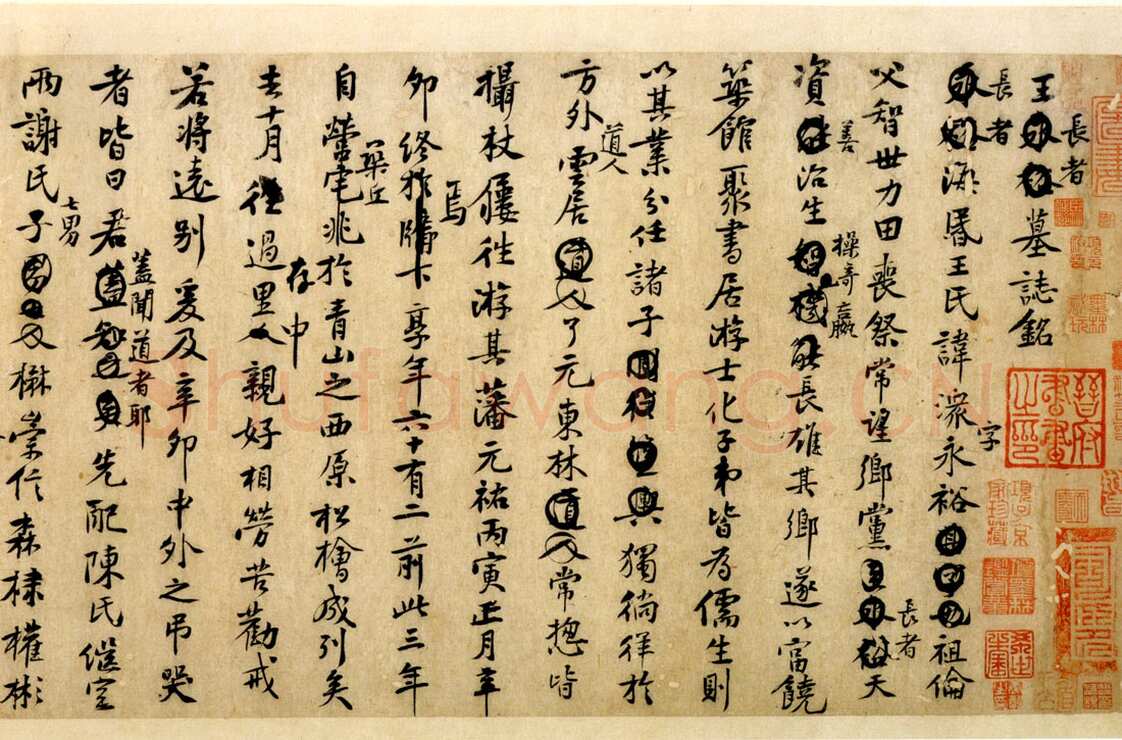 王長者墓誌銘
長者海昬王氏諱潨字永裕祖倫
父智世力田喪祭常望鄉黨長者天
資善治生操奇贏長雄其鄉遂以富饒
築館聚書居游士化子弟皆為儒生則
以其業分任諸子獨徜徉於
方外道人雲居了元東林常揔皆
攝杖屨往游其藩元祐丙寅正月辛
卯終於牖下焉享年六十有二前此三年
自營宅兆築丘於青山之西原松檜成列矣
去十月往過里中存親好相勞苦勸戒
若將遠別爰及辛卯中外之弔哭
者皆曰君蓋聞道者耶先配陳氏繼室
兩謝氏子七男楙崇仁森棣權彬
晉府書畫之印
shufawang.cn